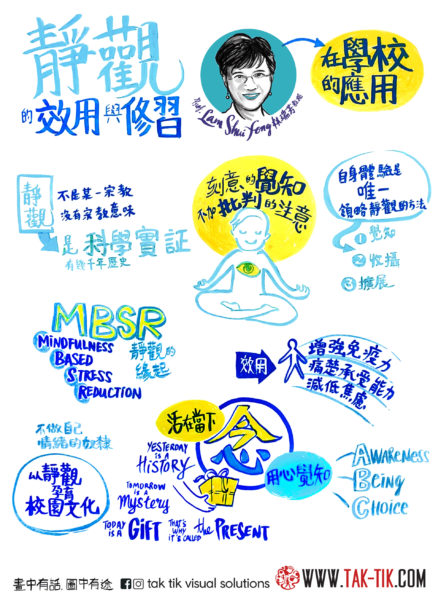 靜觀
的效用與修習
Prof. Lam Shui Fong 林瑞芳教授
在學校
的應用
靜觀
不是某一宗教
沒有宗教意味
是科學實証
有幾千年歷史
刻意的覺知
不加批判的注意
自身體驗是
唯一
領略靜觀的方法
1 覺知
2 收攝
3 擴展
MBSR
MINDFULNESS
BASED
STRESS
REDUCTION
靜觀的
緣起
效用
增強免疫力
痛楚承受能力
減低焦慮
不做自己
情緒的奴隸
以靜觀
孕育
校園文化
活在當下
念
用心覺知
YESTERDAY
IS A
HISTORY
TOMORROW
IS A
Mystery
TODAY
IS A
GIFT
THAT'S
WHY
IT'S CALLED
the PRESENT
AWARENESS
BEING
CHOICE
畫中有話, 圖中有途
tak tik visual solutions
WWW.TAK-TIK.COM